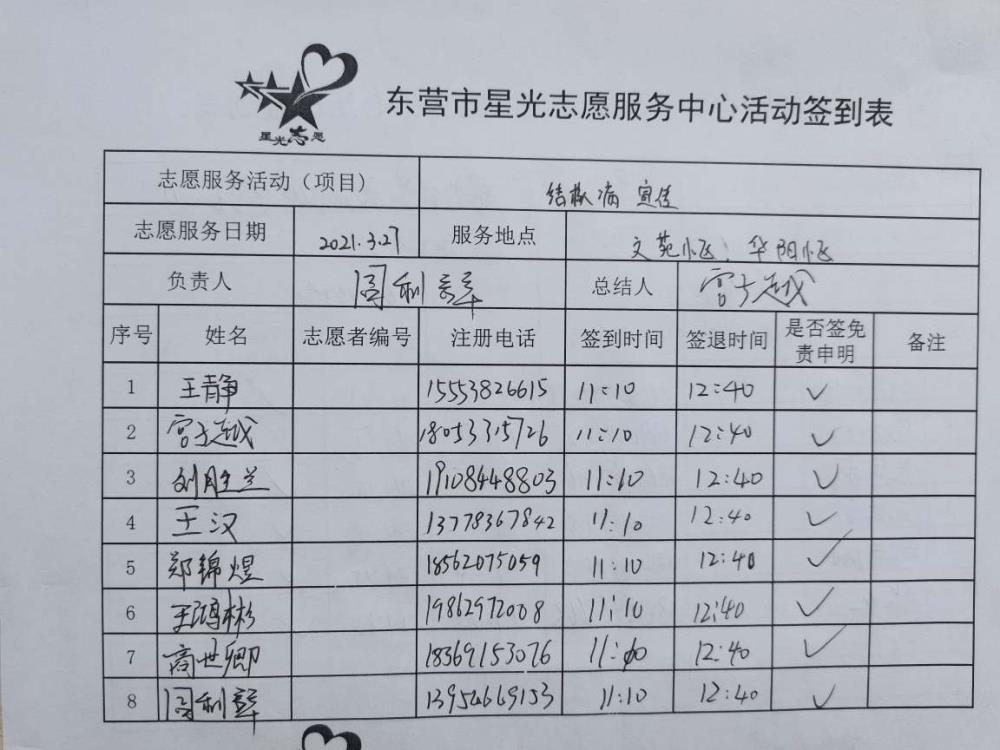 星光志愿
东营市星光志愿服务中心活动签到表
志愿服务活动（项目） 结核病 宣传
志愿服务日期 2021.3.27 服务地点 文苑小区；华阳小区
负责人 周利 总结人 宫子越
序号 姓名 志愿者编号 注册电话 签到时间 签退时间 是否签免责申明 备注
1 王静 15553826615 11:10 12:40 ✓
2 宫子越 18053315726 11:10 12:40 ✓
3 刘胜兰 19108448803 11:10 12:40 ✓
4 王汉 13778367842 11:10 12:40 ✓
5 郑锦煜 18562075059 11:10 12:40 ✓
6 王鸿彬 19862972008 11:10 12:40 ✓
7 高世卿 18369153076 11:10 12:40 ✓
8 周利 13954669153 11:10 12:40 ✓